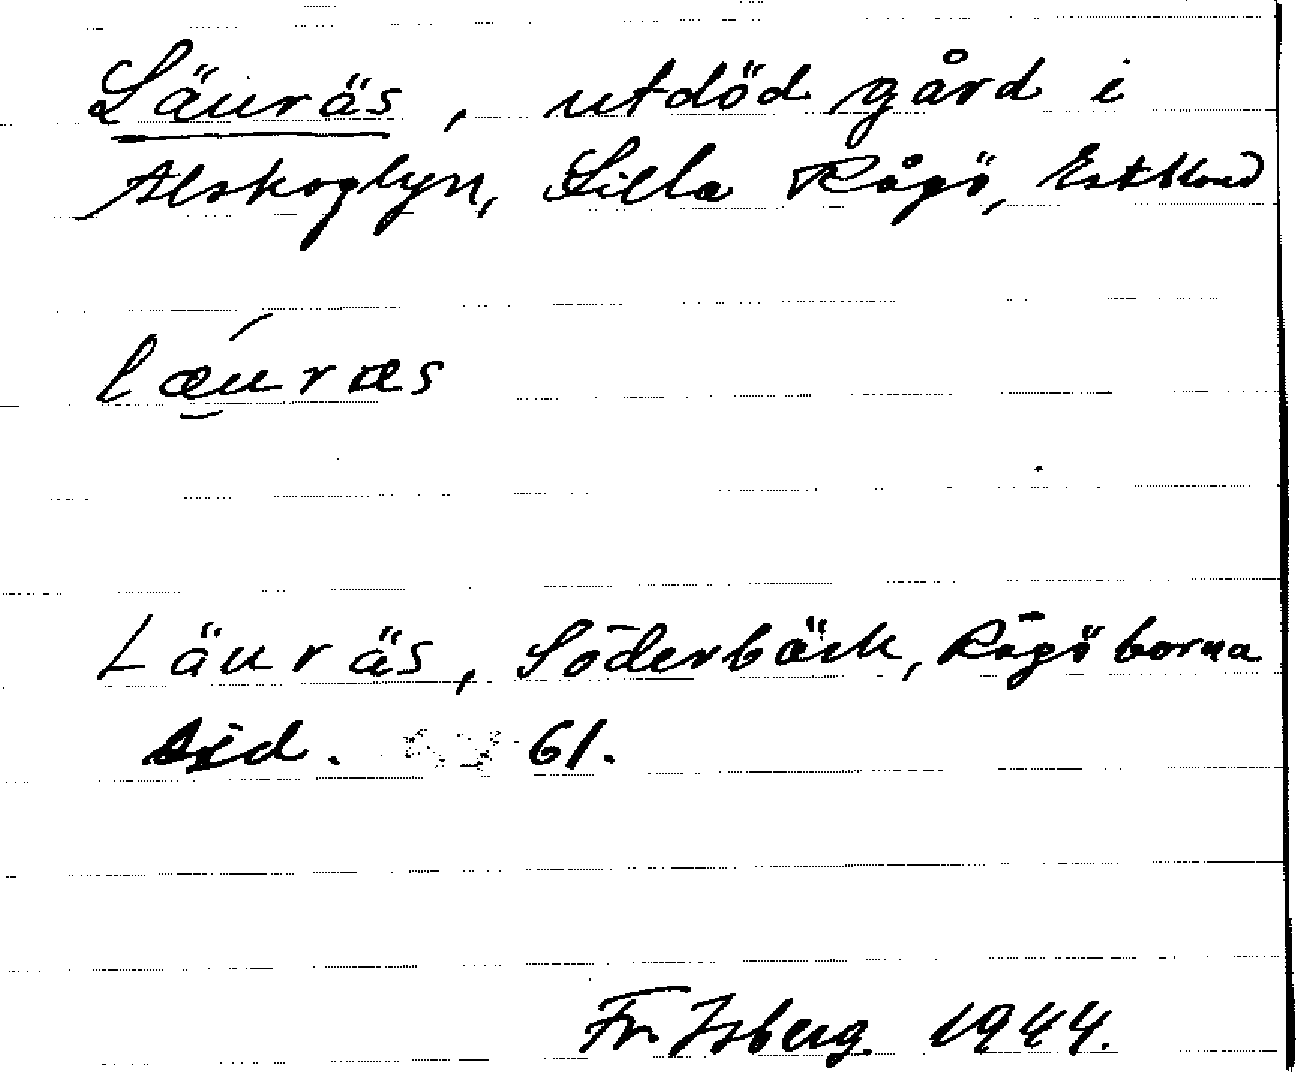 Läuräs, utdöd gård i
Alskoglyn, Lilla Rågö, Estland
læuræs
Läuräs, Söderbäck, Rågöborna
sid. 61.
Fr. Isberg 1944.